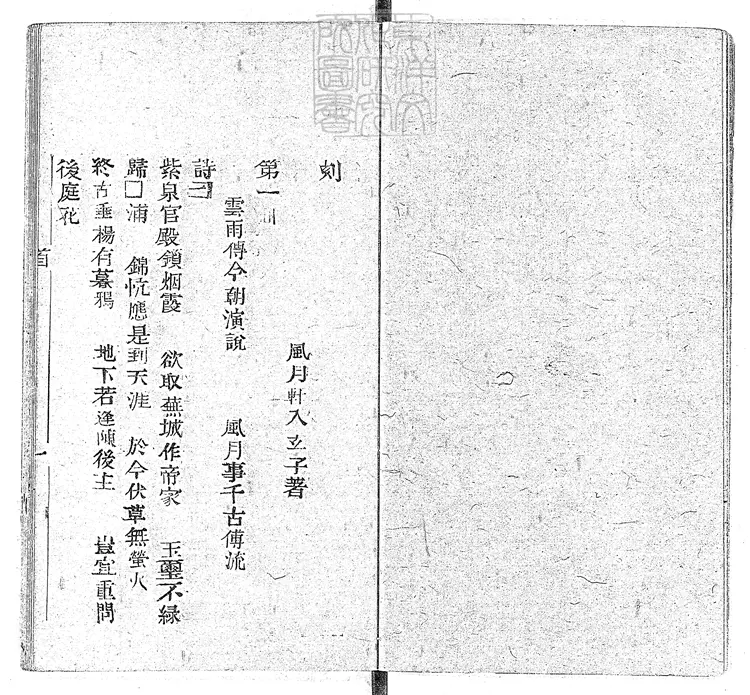 東洋文化研究所圖書
刻
風月軒入玄子著
第一回
雲雨傳今朝演說 風月事千古傳流
詩曰
紫泉官殿鎖烟霞 欲取蕪城作帝家 玉璽不緑
歸□浦 錦忼應是到天涯 於今伏草無螢火
終古垂楊有暮鴉 地下若逢陳後主 豈宜重問
後庭花
首
一